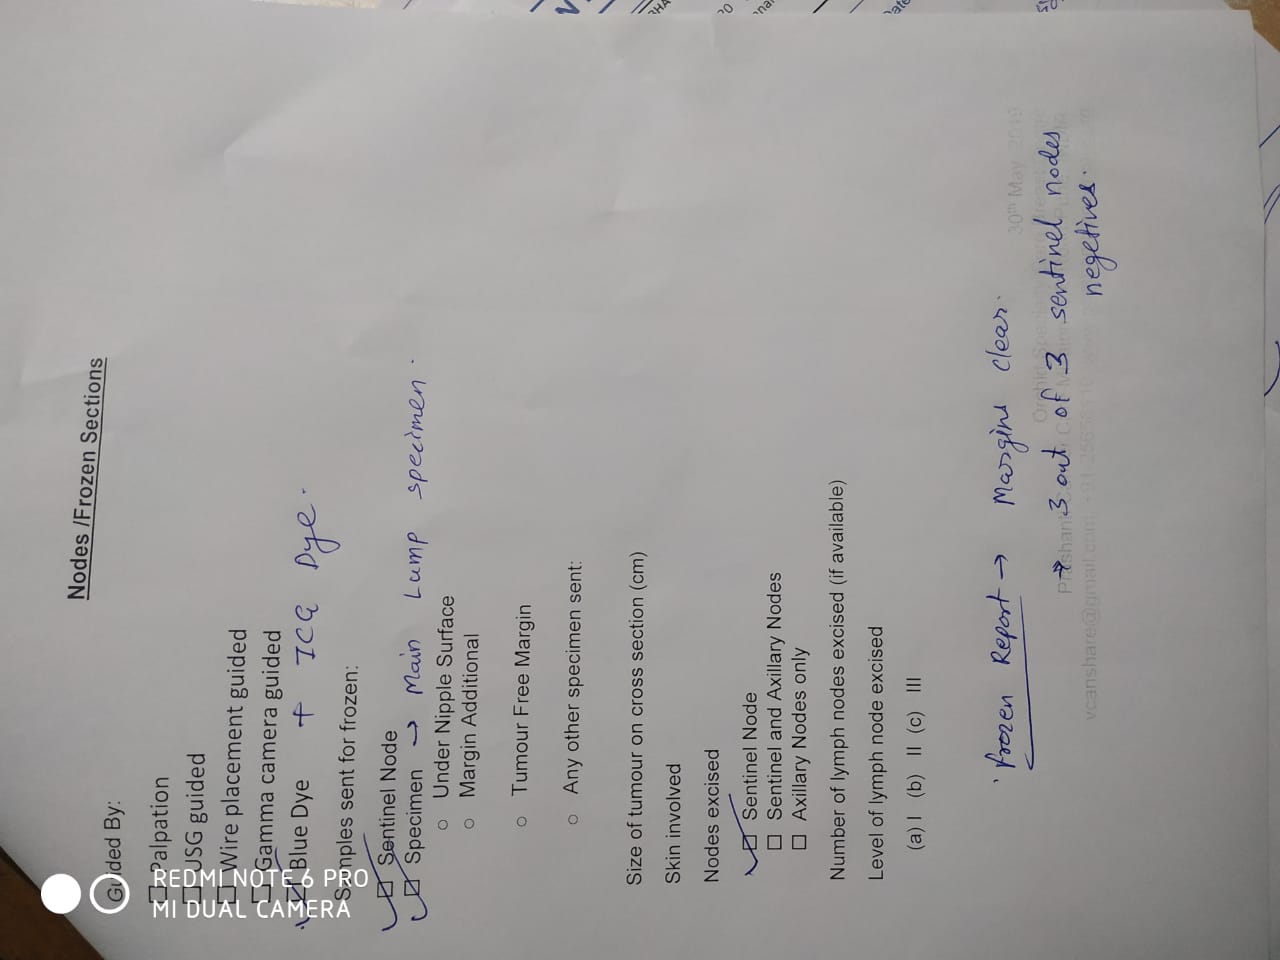 Nodes /Frozen Sections
Guided By:
☐ Palpation
☐ USG guided
☐ Wire placement guided
☐ Gamma camera guided
☑ Blue Dye + ICG Dye.
Samples sent for frozen:
☑ Sentinel Node
☑ Specimen → Main Lump specimen.
○ Under Nipple Surface
○ Margin Additional
○ Tumour Free Margin
○ Any other specimen sent:
Size of tumour on cross section (cm)
Skin involved
Nodes excised
☑ Sentinel Node
☐ Sentinel and Axillary Nodes
☐ Axillary Nodes only
Number of lymph nodes excised (if available)
Level of lymph node excised
(a) I (b) II (c) III
Frozen Report → Margins clear.
→ 3 out of 3 sentinel nodes
negetives.
30th May 2019
REDMI NOTE 6 PRO
MI DUAL CAMERA